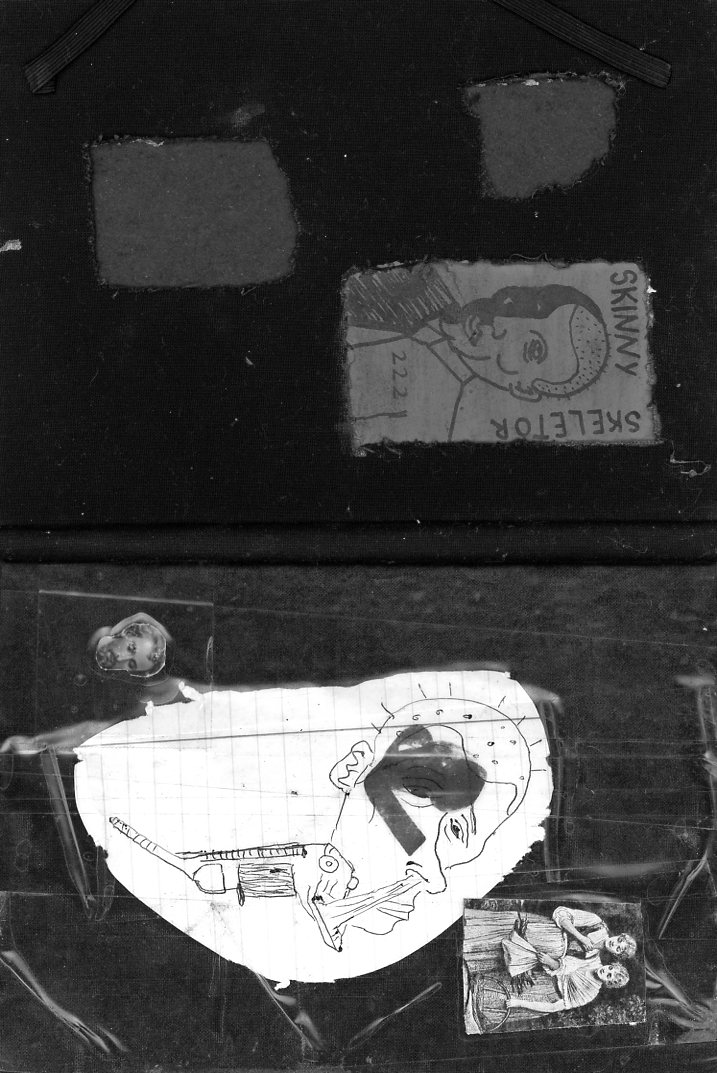 SKINNY
SKELETOR
222